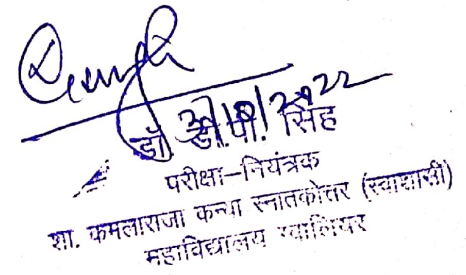 Singh
2022
डॉ. डी.पी. सिंह
परीक्षा-नियंत्रक
शा. कमलाराजा कन्या स्नातकोत्तर (स्वाशासी)
महाविद्यालय ग्वालियर